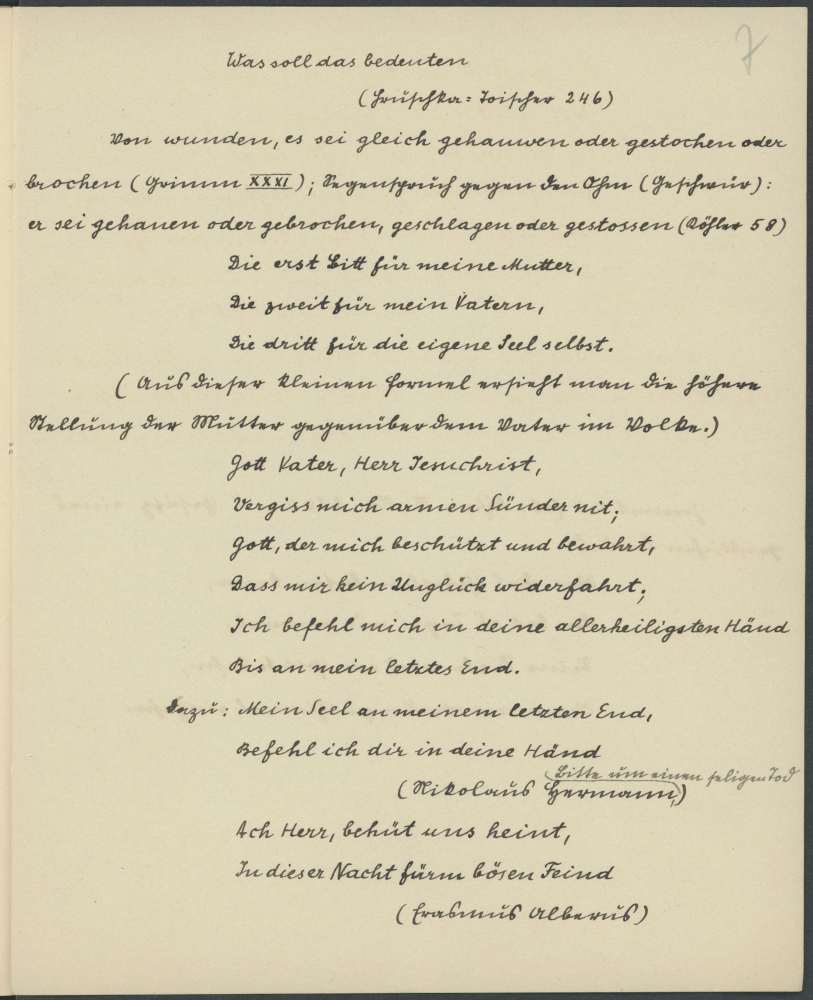 7
Was soll das bedeuten
(Hruschka: Toischer 246)
Von wunden, es sei gleich gehauwen oder gestochen oder
brochen (Grimm XXXI); Segenspruch gegen den Ohm (Geschwür):
er sei gehauen oder gebrochen, geschlagen oder gestossen (Köhler 58)
Die erst Bitt für meine Mutter,
Die zweit für mein Vatern,
Die dritt für die eigene Seel selbst.
(Aus dieser kleinen Formel ersieht man die höhere
Stellung der Mutter gegenüber dem Vater im Volke.)
Gott Vater, Herr Jesuchrist,
Vergiss mich armen Sünder nit;
Gott, der mich beschützt und bewahrt,
Dass mir kein Unglück widerfahrt;
Ich befehl mich in deine allerheiligsten Händ
Bis an mein letztes End.
Dazu: Mein Seel an meinem letzten End,
Befehl ich dir in deine Händ
(Nikolaus Hermann, Bitte um einen seligen Tod)
Ach Herr, behüt uns heint,
In dieser Nacht fürm bösen Feind
(Erasmus Alberus)